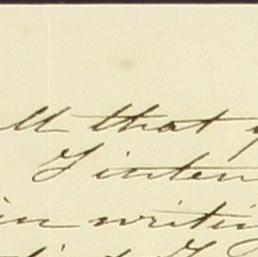 ll that
I inten
in writin